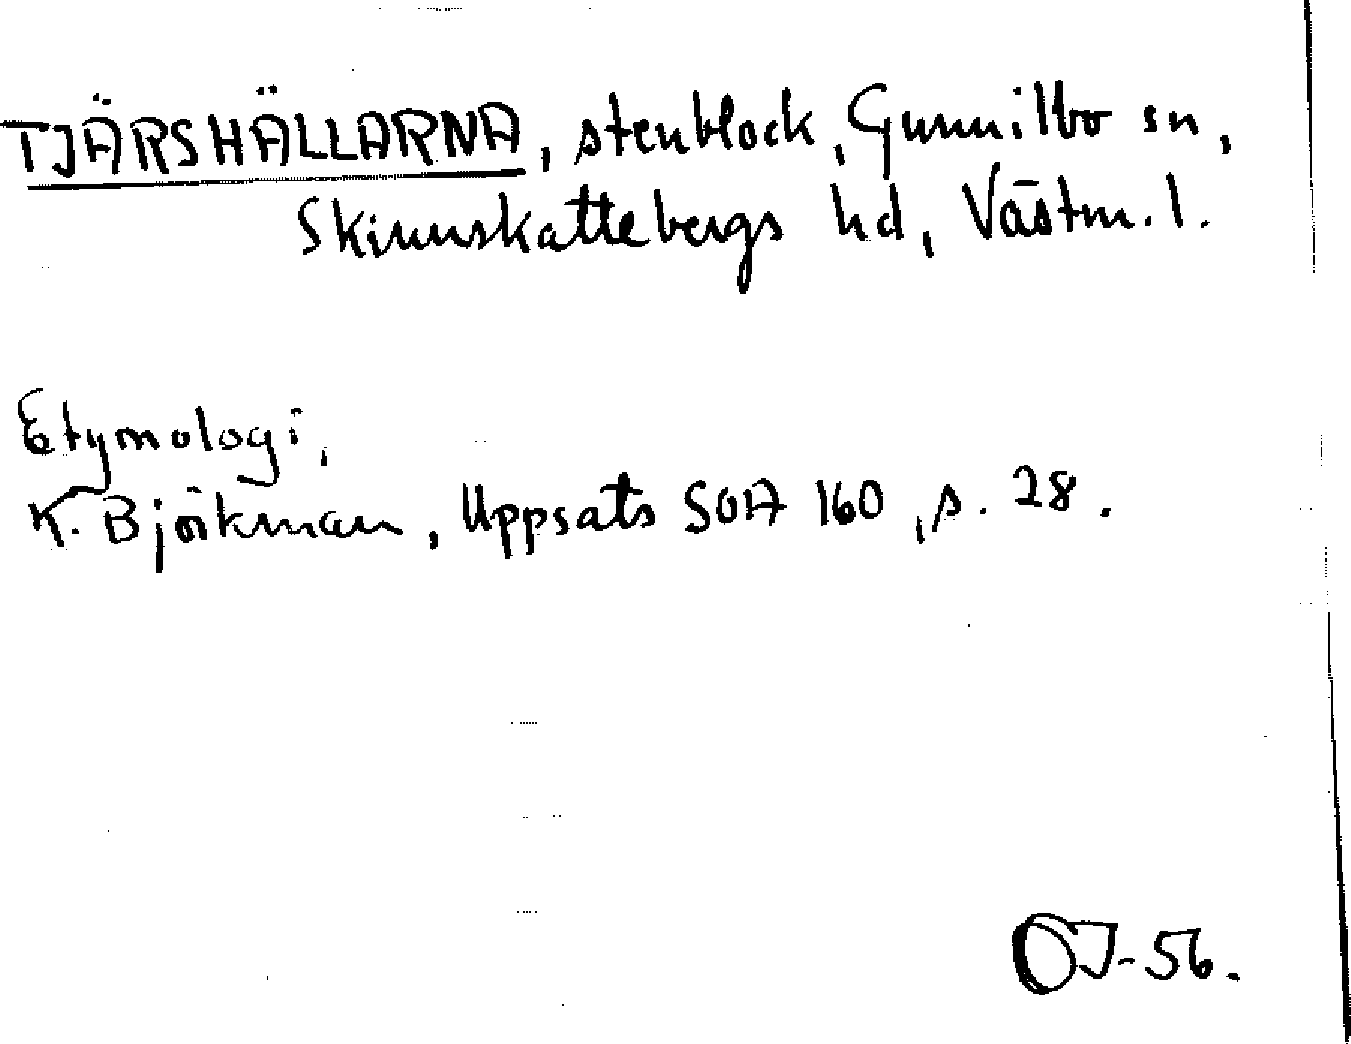 TJÄRSHÄLLARNA, stenblock, Gunnilbo sn,
Skinnskattebergs hd, Västm. l.
Etymologi,
K. Björkman, Uppsats SOA 160, s. 28.
OJ-56.